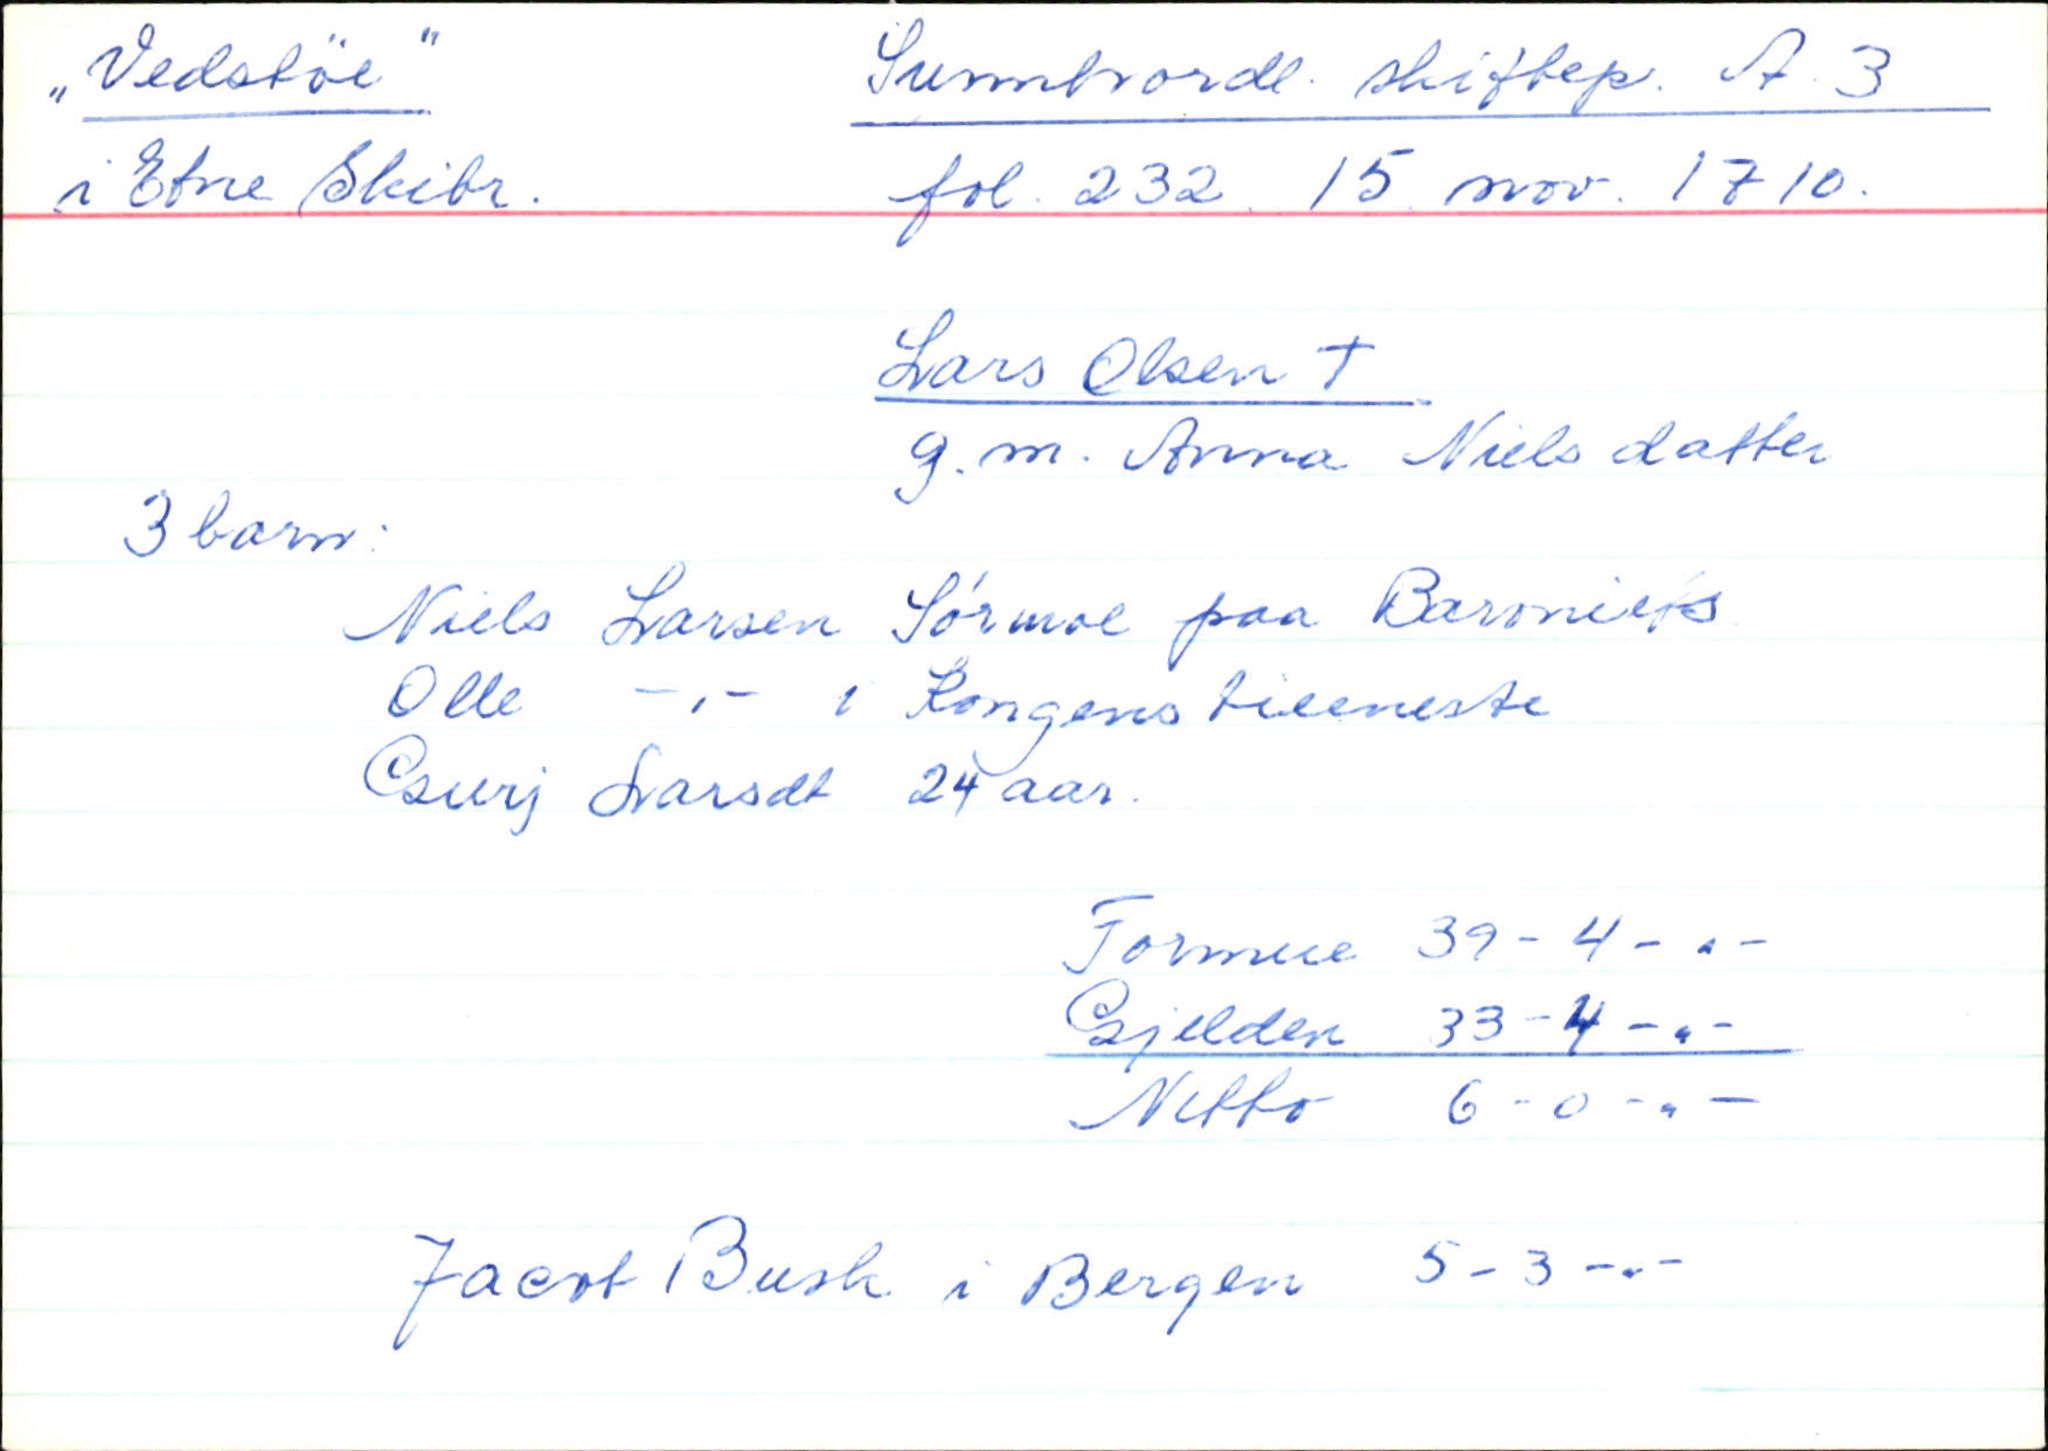 „Vedstöe" Sunnhordl. skiftep. A. 3
i Etne Skibr. fol. 232. 15 nov. 1710.
Lars Olsen †
g. m. Anna Nielsdatter
3 barn:
Niels Larsen Sörmoe paa Baroniets
Olle -„- i Kongens tieeneste
Gurj Larsdt 24 aar.
Formue 39 - 4 - „ -
Gjelden 33 - 4 - „ -
Netto 6 - 0 - „ -
Jacob Bush i Bergen 5 - 3 - „ -